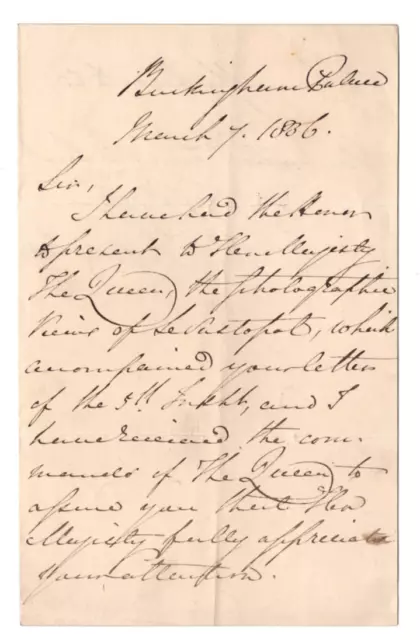 Buckingham Palace
March 7. 1856.
Sir,
I have had the Honor
to present to Her Majesty
The Queen, the photographic
Views of Sebastopol, which
accompanied your letter
of the 5th Inst, and I
have received the com-
mands of The Queen to
assure you that Her
Majesty fully appreciates
your attention.